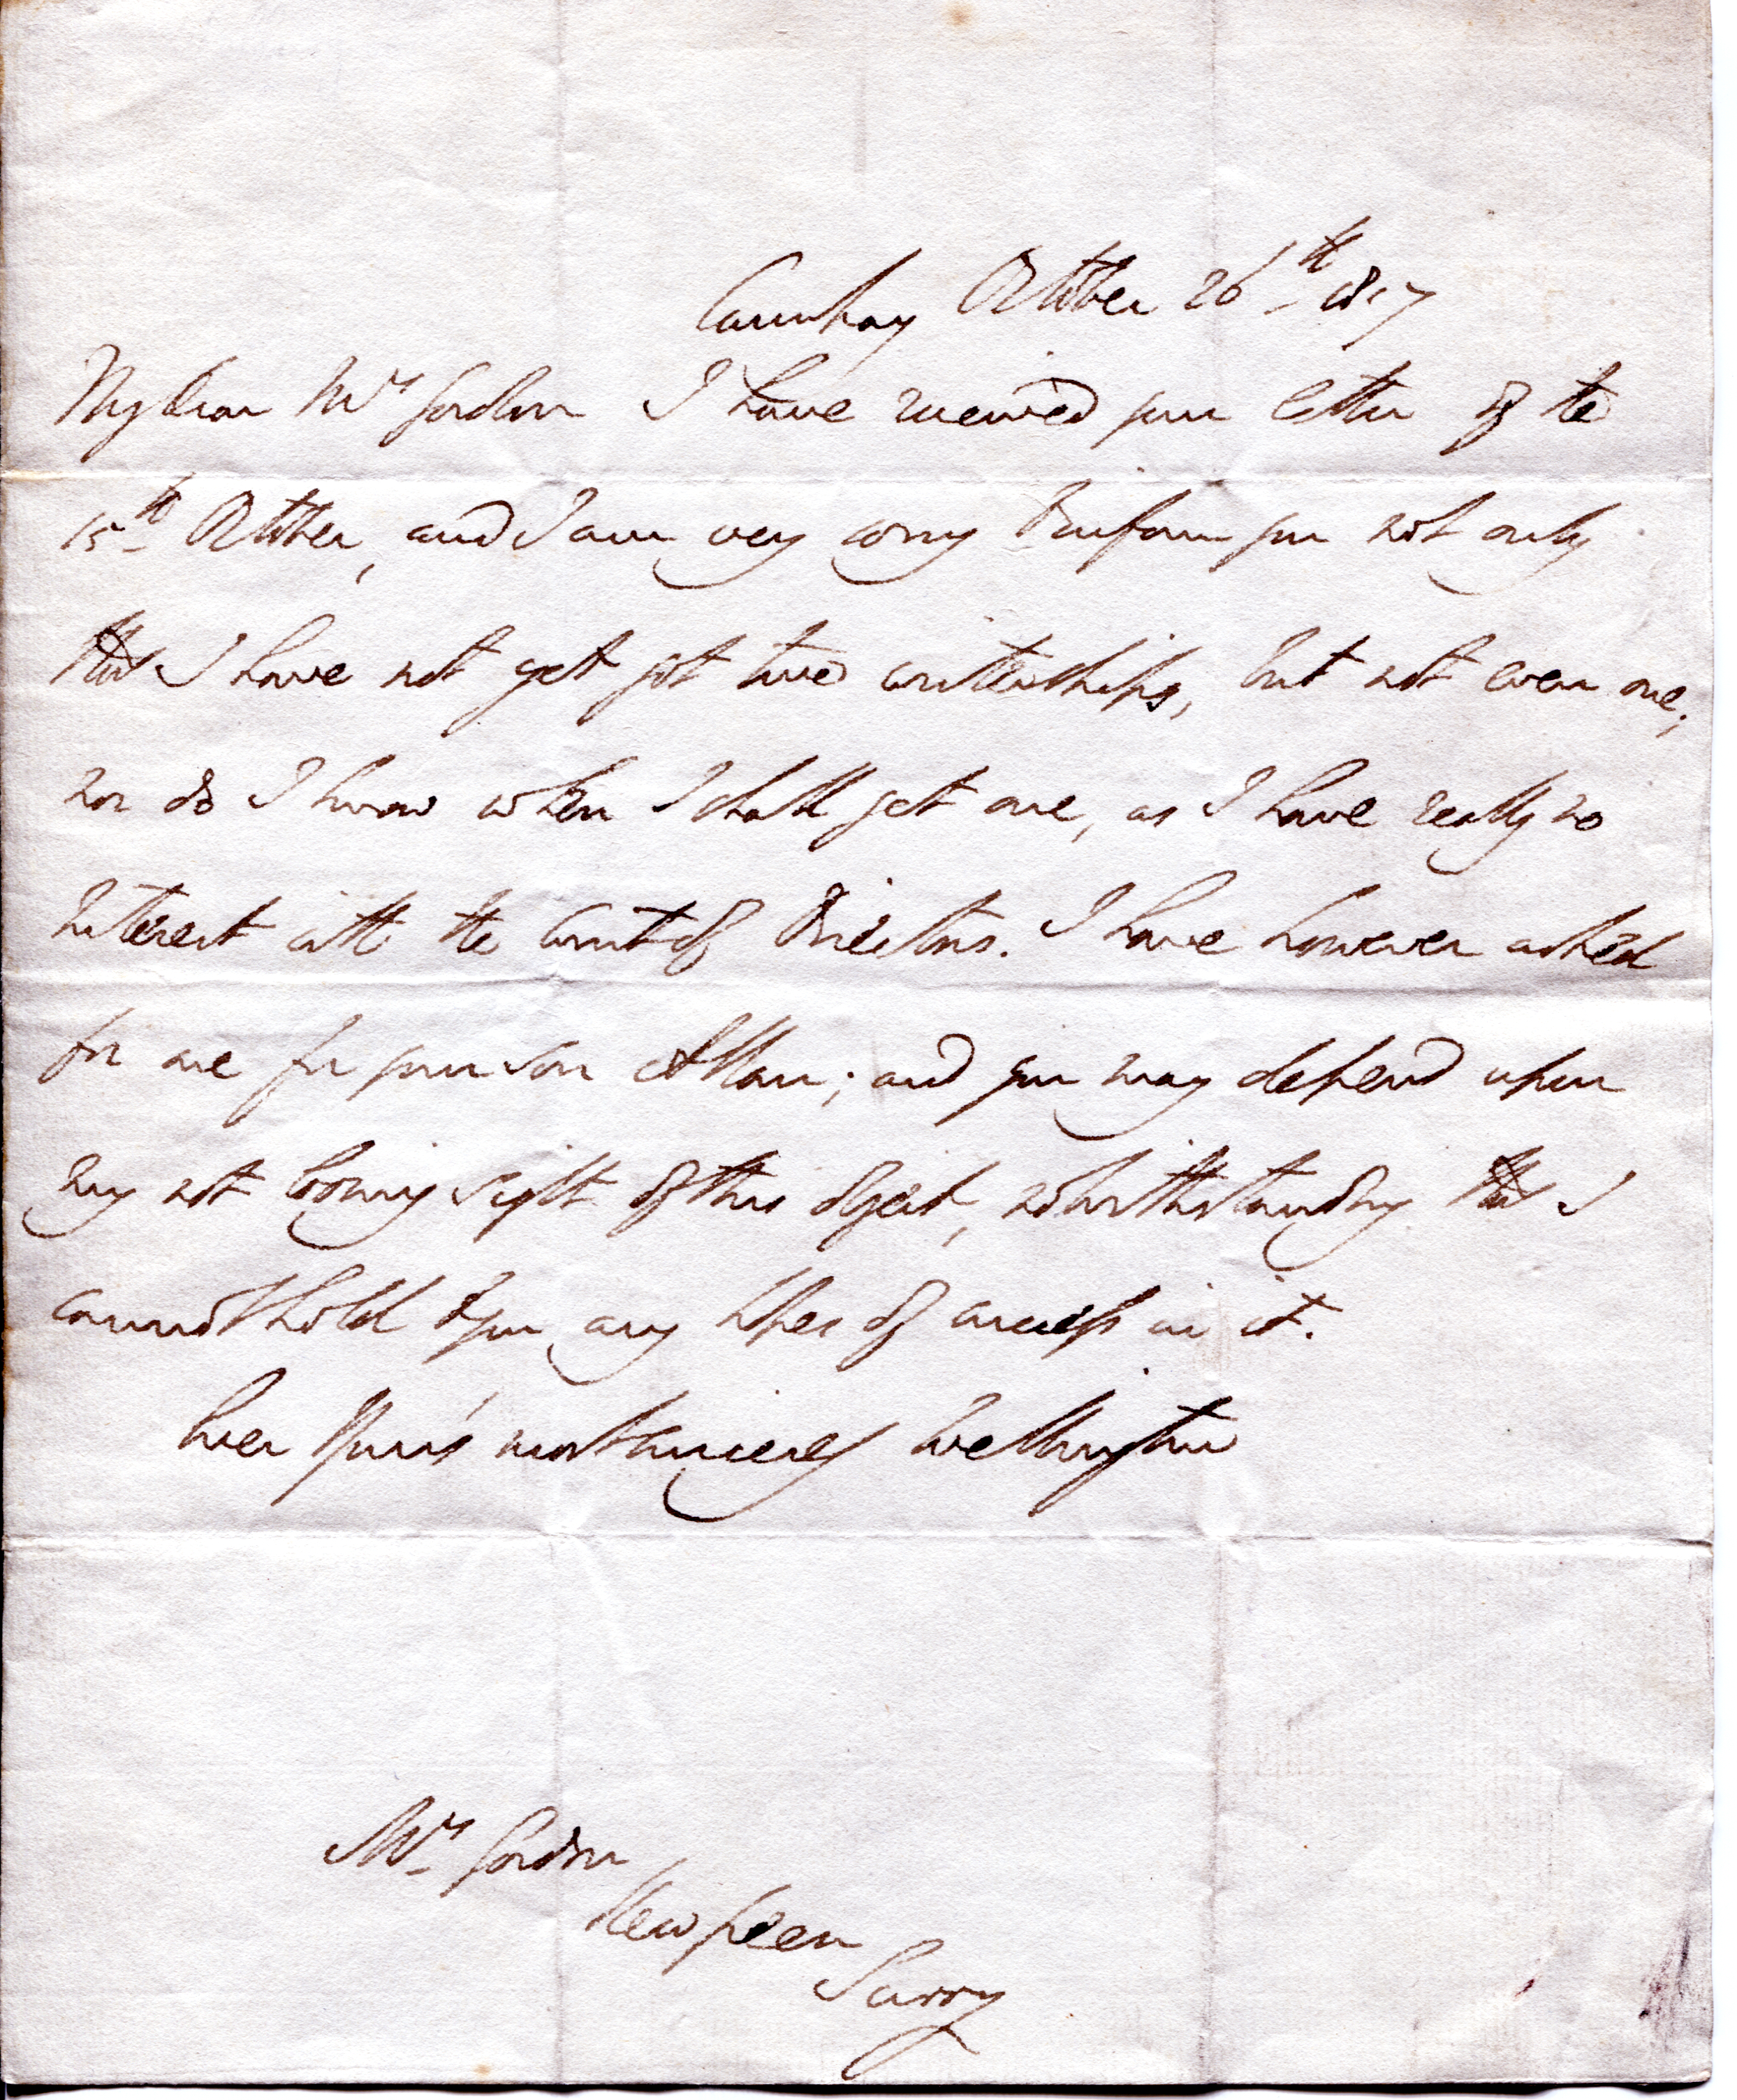 Cambray October 26th 1817
My Dear Mrs Gordon I have received your letter of the
15th October, and I am very sorry to inform you not only
that I have not yet got two writerships, but not even one;
nor do I know when I shall get one, as I have really no
Interest with the Court of Directors. I have however asked
for one for your son Allan; and you may depend upon
my not loosing sight of this object, notwithstanding that I
cannot hold to you any hopes of success in it.
Ever Your's most sincerely Wellington
Mrs Gordon
Kew Green
Surry